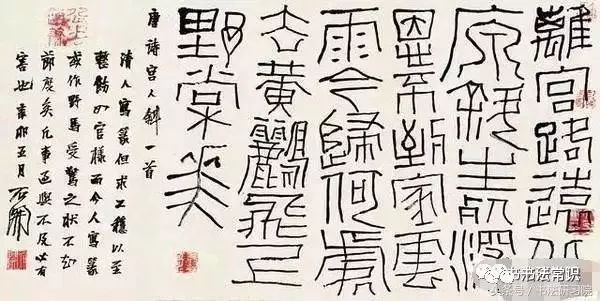 離宮路遠北
原斜生死深
恩不到家雲
雨今歸何處
去黃鸝飛上
野棠花
唐詩宮人斜一首
清人寫篆但求工穩以至
整飭如官樣而今人寫篆
或作野馬受驚之狀不知
節度矣凡事過與不及必有
害也辛卯五月 石開
书书法常识
头条号/书法研习院